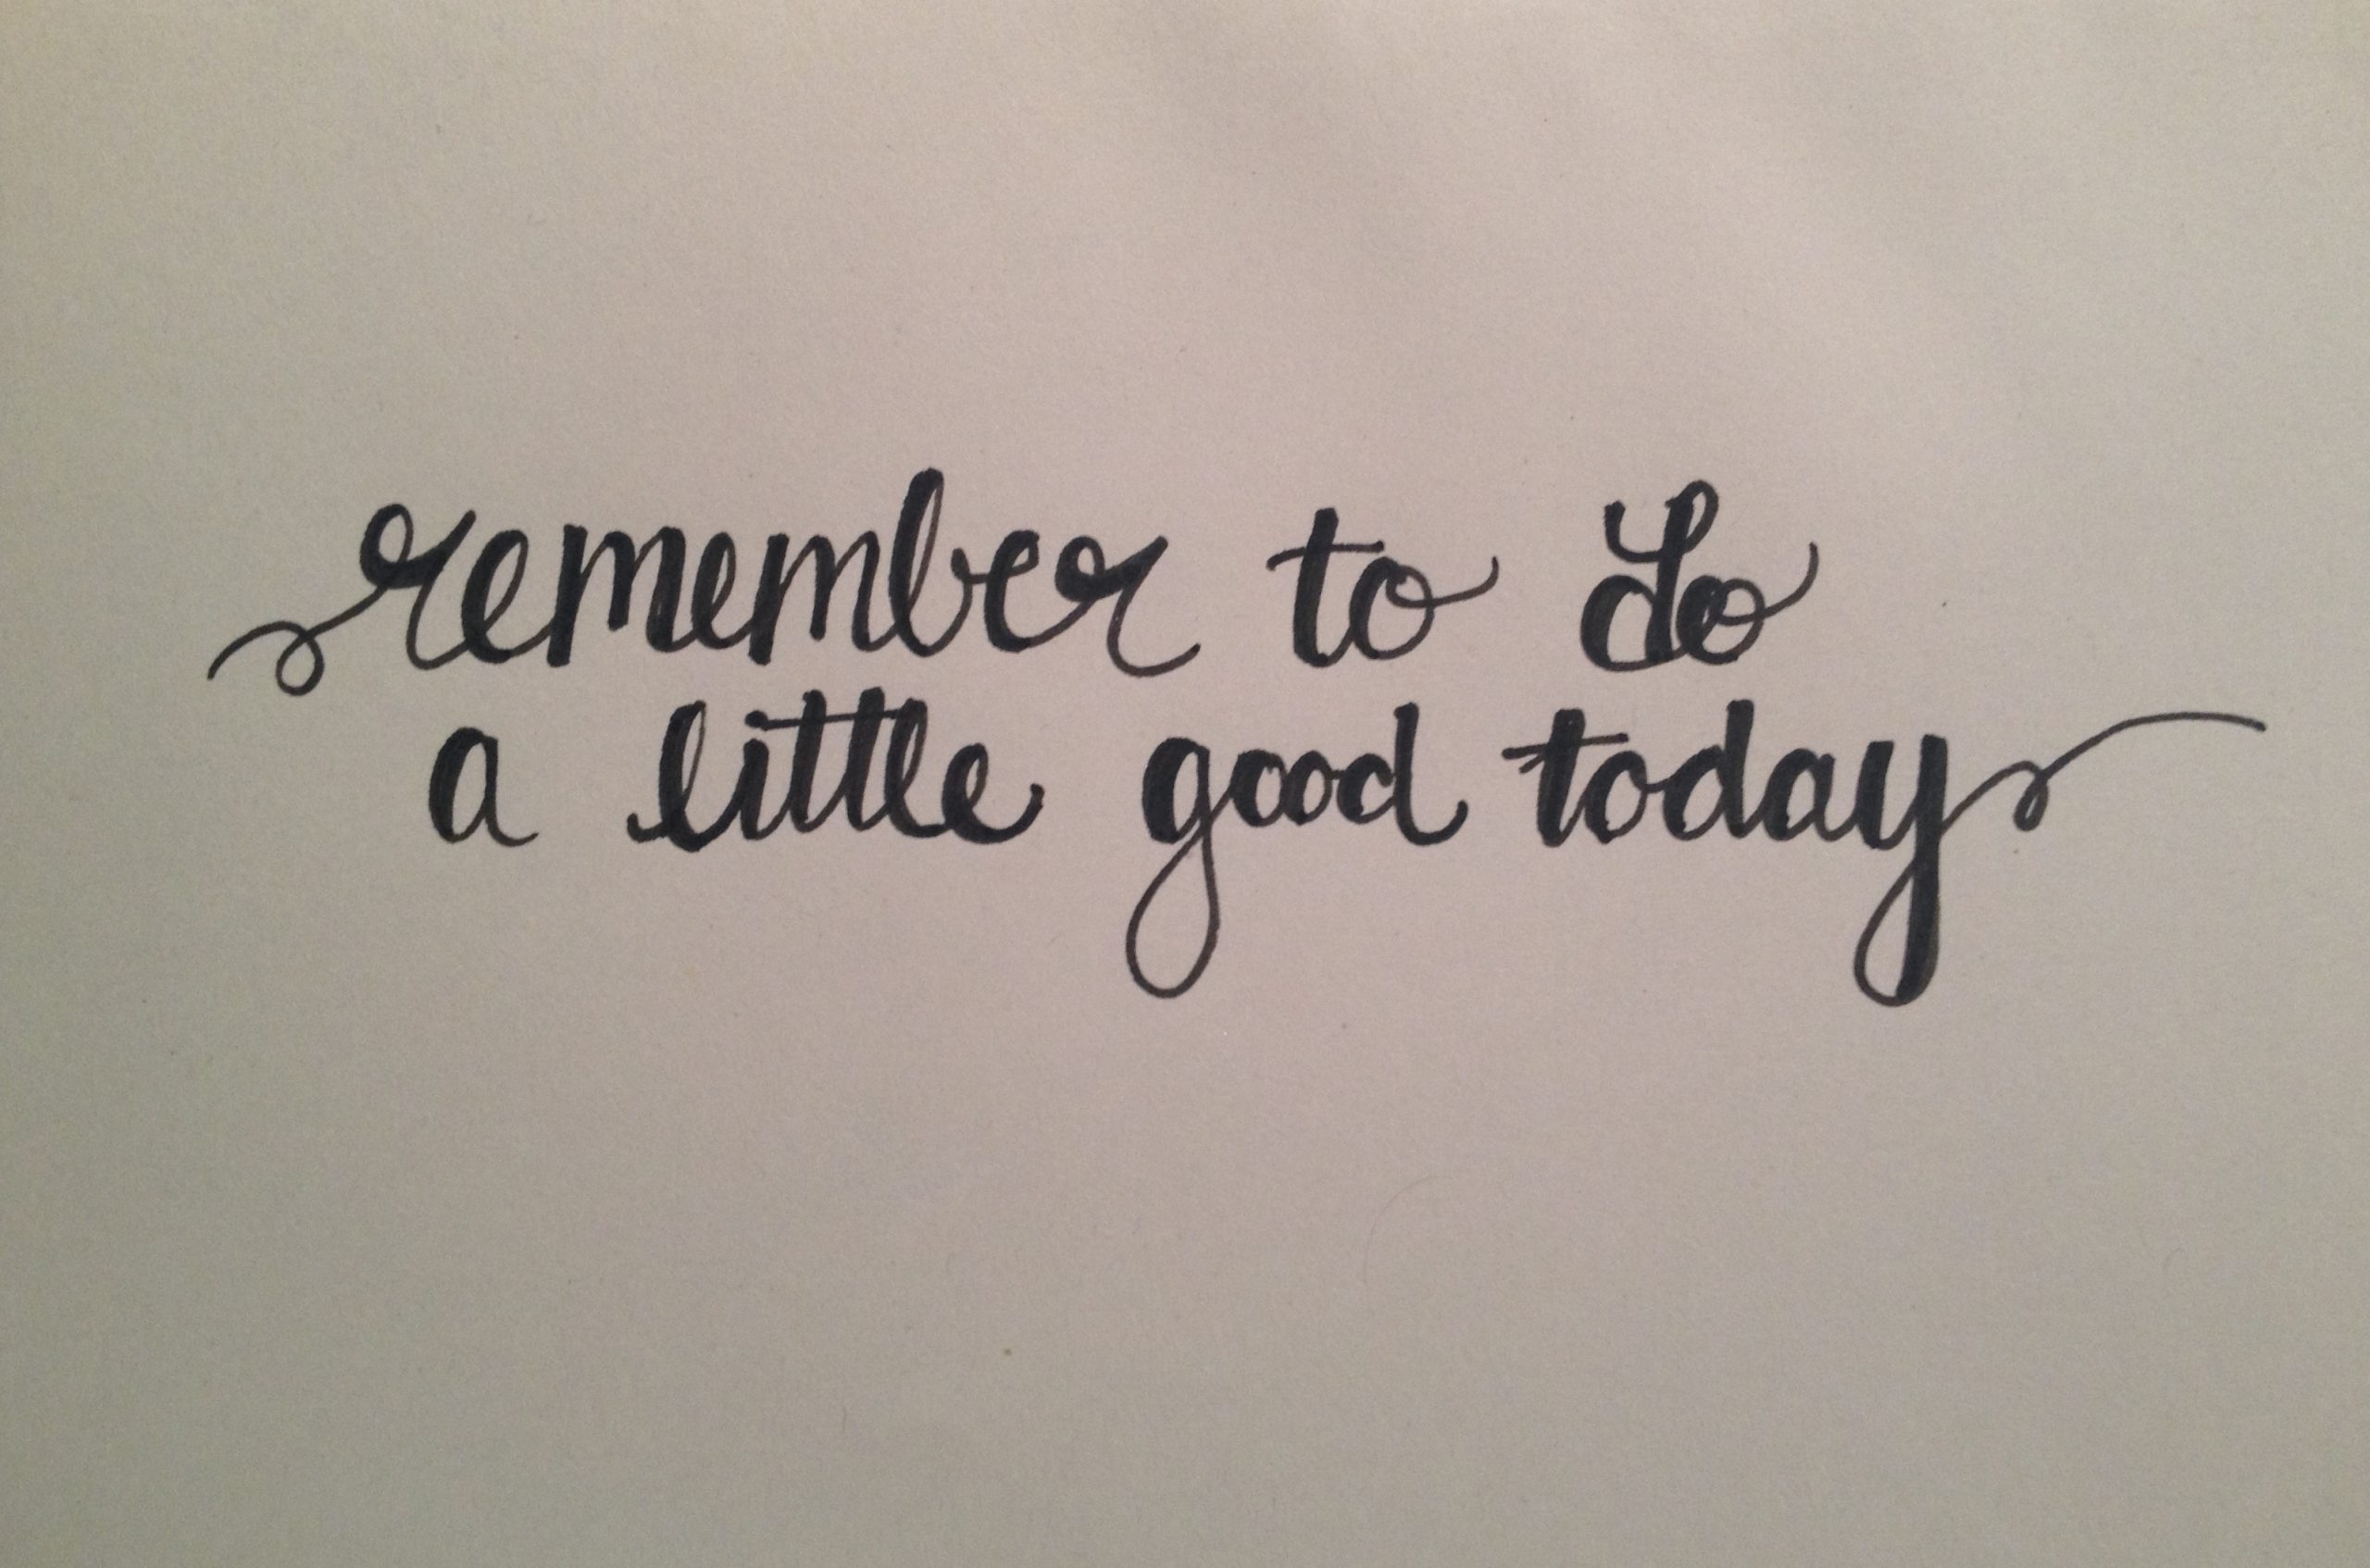 remember to do
a little good today